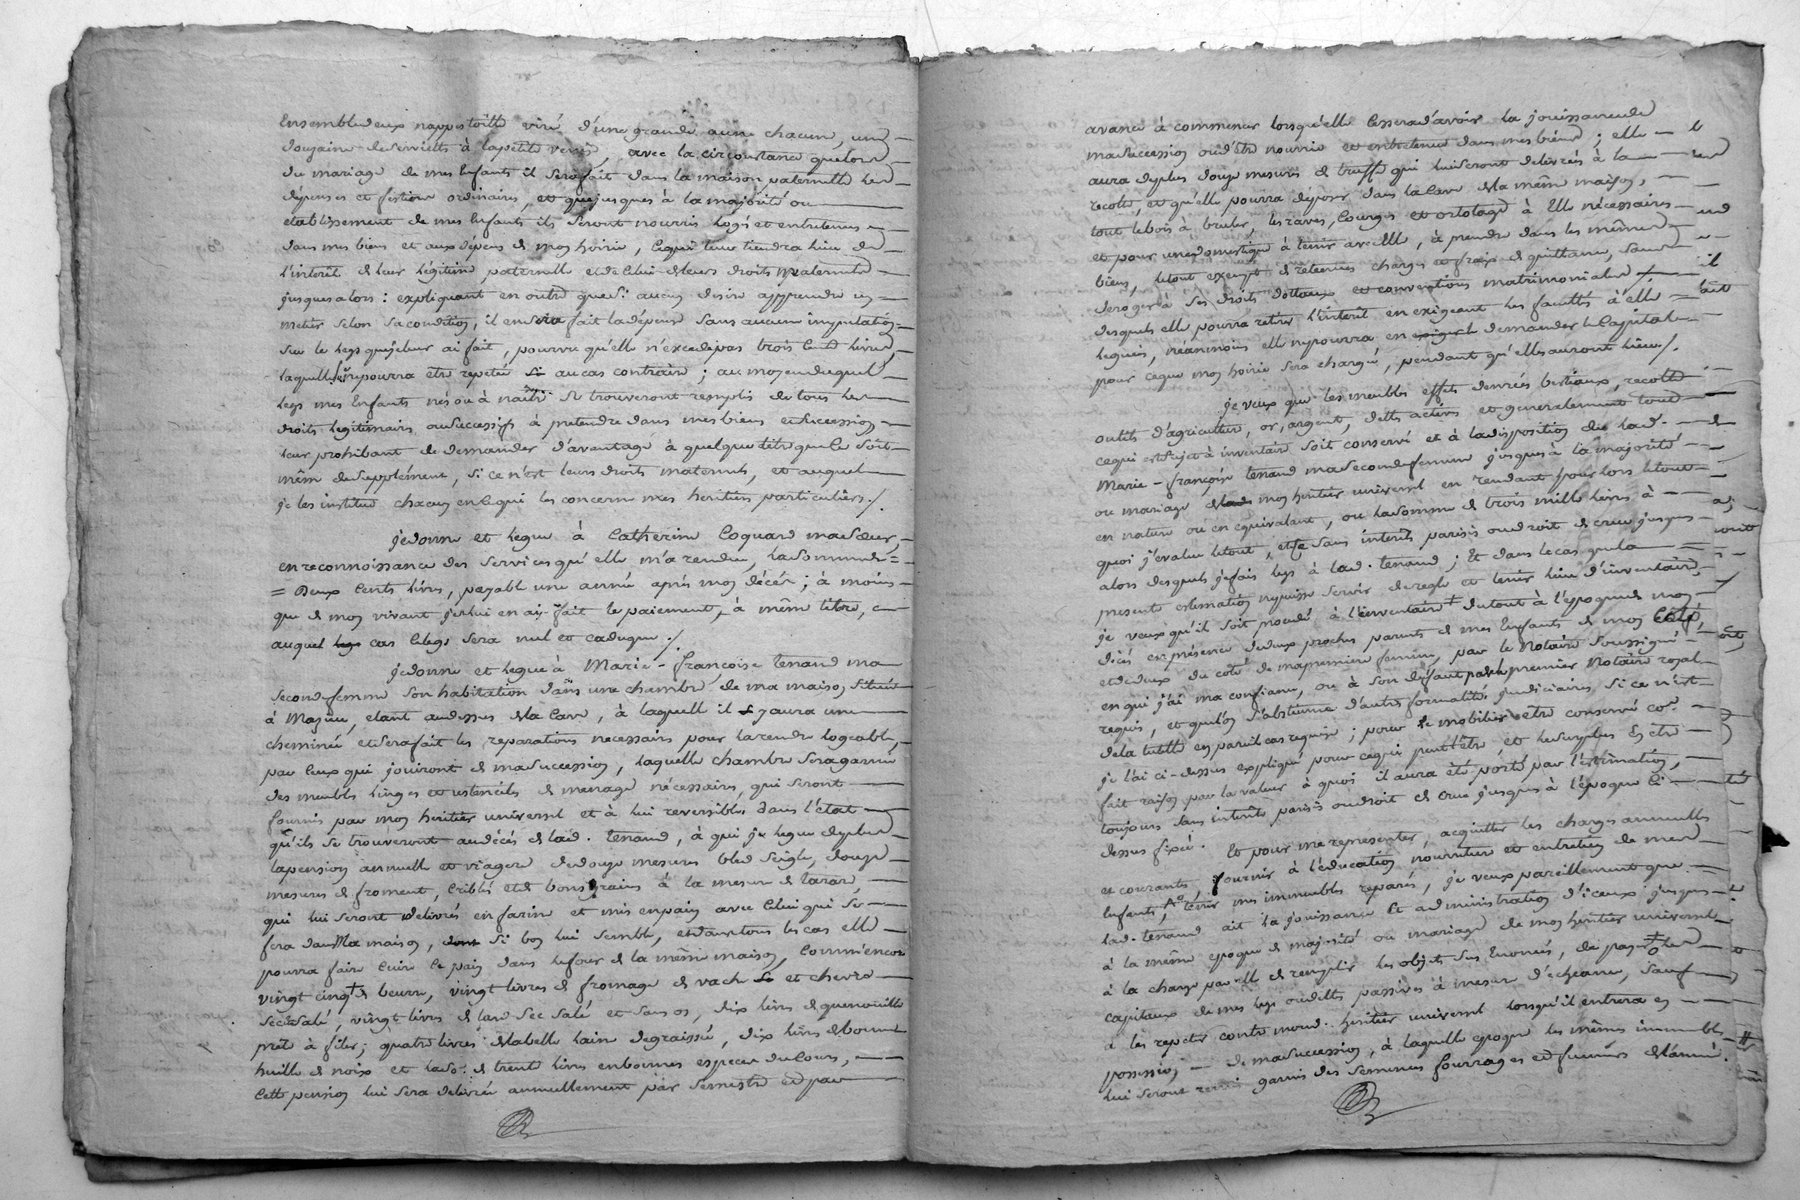 Ensemble deux nappes toille viré d'une grande aune chacune, une
douzaine de serviette à la petite venise, avec la circonstance que lors
du mariage de mes Enfants il sera fait dans la maison paternelle les
dépenses et festins ordinaires, et que jusques à la majorité ou
etablissement de mes Enfants ils seront nourris logés et entretenus
dans mes biens et aux dépens de mon hoirie, ce qui leur tiendra lieu de
l'interêt de leur légitime paternelle et de celui de leurs droits maternels
jusques alors : expliquant en outre que si aucun désire apprendre un
metier selon sa condition, il en sera fait la dépense sans aucune imputation
sur le legs que je leur ai fait, pourvu qu'elle n'excede pas trois cents livres,
laquelle ne pourra etre repetée si au cas contraire ; au moyen duquel
legs mes Enfants nés ou à naître se trouveront remplis de tous les
droits legitimaires ou successifs à pretendre dans mes biens et succession
leur prohibant de demander d'avantage à quelque titre que ce soit
même de supplément, si ce n'est leurs droits maternels, et auquel
je les institue chacun en ce qui les concerne mes heritiers particuliers./.
je donne et legue à Catherine Coquard ma sœur,
en reconnoissance des services qu'elle m'a rendu, la somme de =
= Deux Cents livres, payable une année après mon décés ; à moins
que de mon vivant je ne lui en ay fait le paiement, à même titre,
auquel cas le legs sera nul et caduque ./.
je donne et legue à Marie-françoise tenand ma
seconde femme son habitation dans une chambre de ma maison située
à Mazieu, etant audessus de la Cave, à laquelle il y aura une
cheminée et sera fait les reparations necessaires pour la rendre logeable,
par ceux qui jouiront de ma succession, laquelle chambre sera garnie
des meubles linges et ustenciles de menage nécessaires, qui seront
fournis par mon heritier universel et à lui reversibles dans l'état
qu'ils se trouveront au décés de lad. tenand, à qui je legue de plus
la pension annuelle et viagere de douze mesures bled seigle, douze
mesures de froment, criblé et de bons grains à la mesure de tarare,
qui lui seront delivrés en farine et mis en pain avec celui qui se
fera dans la maison, si bon lui semble, et dans tous les cas elle
pourra faire cuire le pain dans le four de la même maison, Comm'encor
vingt cinq de beurre, vingt livres de fromage de vache et chevre
sec et salé, vingt livres de lard sec salé et sans os, dix livres de quenouille
prête à filer, quatre livres de belle laine degraissée, dix livres de bonne
huille de noix et la so. de trente livres en bonnes especes du Cours,
Cette pension lui sera delivrée annuellement par semestre et par
avance à commencer lorsqu'elle cessera d'avoir la jouissance de
ma succession ou d'être nourrie et entretenue dans mes biens ; elle
aura de plus douze mesures de truffe qui lui seront delivrées à la
recolte, et qu'elle pourra déposer dans la Cave de la même maison,
tout le bois à bruler, les raves, Courges et ortolage à Elle nécessaires
et pour une domestique à tenir avec elle, à prendre dans les mêmes
biens, le tout exempt de retenues charges et frais de quittance, sans
deroger à ses droits dottaux et conventions matrimoniales
desquels elle pourra retirer l'interêt en exigeant les facultés à elle
leguées, néanmoins elle ne pourra en demander le Capital
pour ce que mon hoirie sera chargée, pendant qu'elles auront lieu./.
je veux que les meubles effets denrées bestiaux, recolte
outils d'agriculture, or, argent, dette actives et generalement tout
ce qui est sujet à inventaire soit conservé et à la disposition de lad.
Marie-françoise tenand ma seconde femme jusques à la majorité
ou mariage de mon heritier universel en rendant pour lors le tout
en nature ou en equivalant, ou la somme de trois mille livres à
quoi j'evalue le tout, et ce sans interêts parisis ou droit de crue jusques
alors desquels je fais legs à lad. tenand ; Et dans le cas que la
presente estimation ne puisse servir de regle et tenir lieu d'inventaire,
je veux qu'il soit procedé à l'inventaire du tout à l'epoque de mon
décés en présence de deux proches parents de mes Enfants de mon Coté,
et de deux du coté de ma premiere femme, par le Notaire soussigné
en qui j'ai ma confiance, ou à son defaut par le premier Notaire royal
requis, et qu'on s'abstienne d'autres formalités judiciaires, si ce n'est
de la tutelle en pareil cas requise ; pour le mobilier etre conservé co.
je l'ai ci-dessus expliqué pour ce qui peut l'être et le surplus En etre
fait raison par la valeur à quoi il aura été porté par l'estimation,
toujours sans interêts parisis ou droit de crue jusques à l'époque ci
dessus fixée. Et pour me representer, acquitter les charges annuelles
et courantes, fournir à l'éducation nourriture et entretien de mes
Enfants, tenir mes immeubles reparés, je veux pareillement que
lad. tenand ait la jouissance Et administration d'iceux jusques
à la même epoque de majorité ou mariage de mon heritier universel
à la charge par elle de remplir les objets sus Enoncés, de payer les
capitaux de mes legs ou dettes passives à mesure d'echeance, sauf
à les repeter contre mond. heritier universel lorsqu'il entrera en
possession de ma succession, à laquelle epoque les mêmes immeubles
lui seront remis garnis des semences fourrages et fumiers de l'année.